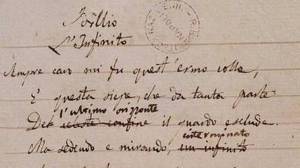 Idillio
L'Infinito
Sempre caro mi fu quest'ermo colle,
E questa siepe, che da tanta parte
l'ultimo orizzonte
Del celeste confine il guardo esclude.
interminato
Ma sedendo e mirando, un infinito